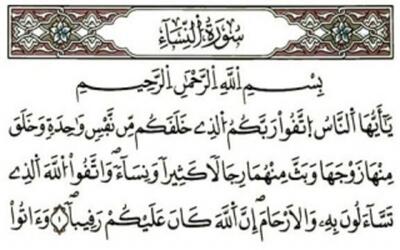 سُورَةُ النِّسَآءِ
بِسْمِ اللَّهِ الرَّحْمَٰنِ الرَّحِيمِ
يَٰٓأَيُّهَا اَلنَّاسُ اُ۪تَّقُواْ رَبَّكُمُ اُلذِے خَلَقَكُم مِّن نَّفْسٖ وَٰحِدَةٖ وَخَلَقَ
مِنْهَا زَوْجَهَا وَبَثَّ مِنْهُمَا رِجَالاٗ كَثِيراٗ وَنِسَآءٗ وَاتَّقُواْ اُللَّهَ اَلذِے
تَسَّآءَلُونَ بِهِۦ وَالَارْحَامَۖ إِنَّ اَللَّهَ كَانَ عَلَيْكُمْ رَقِيباٗۖ ١ وَءَاتُواْ